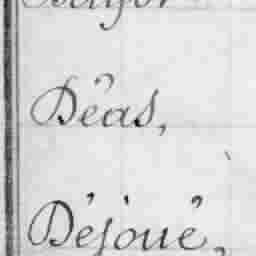 Dêas,
Déjoué,